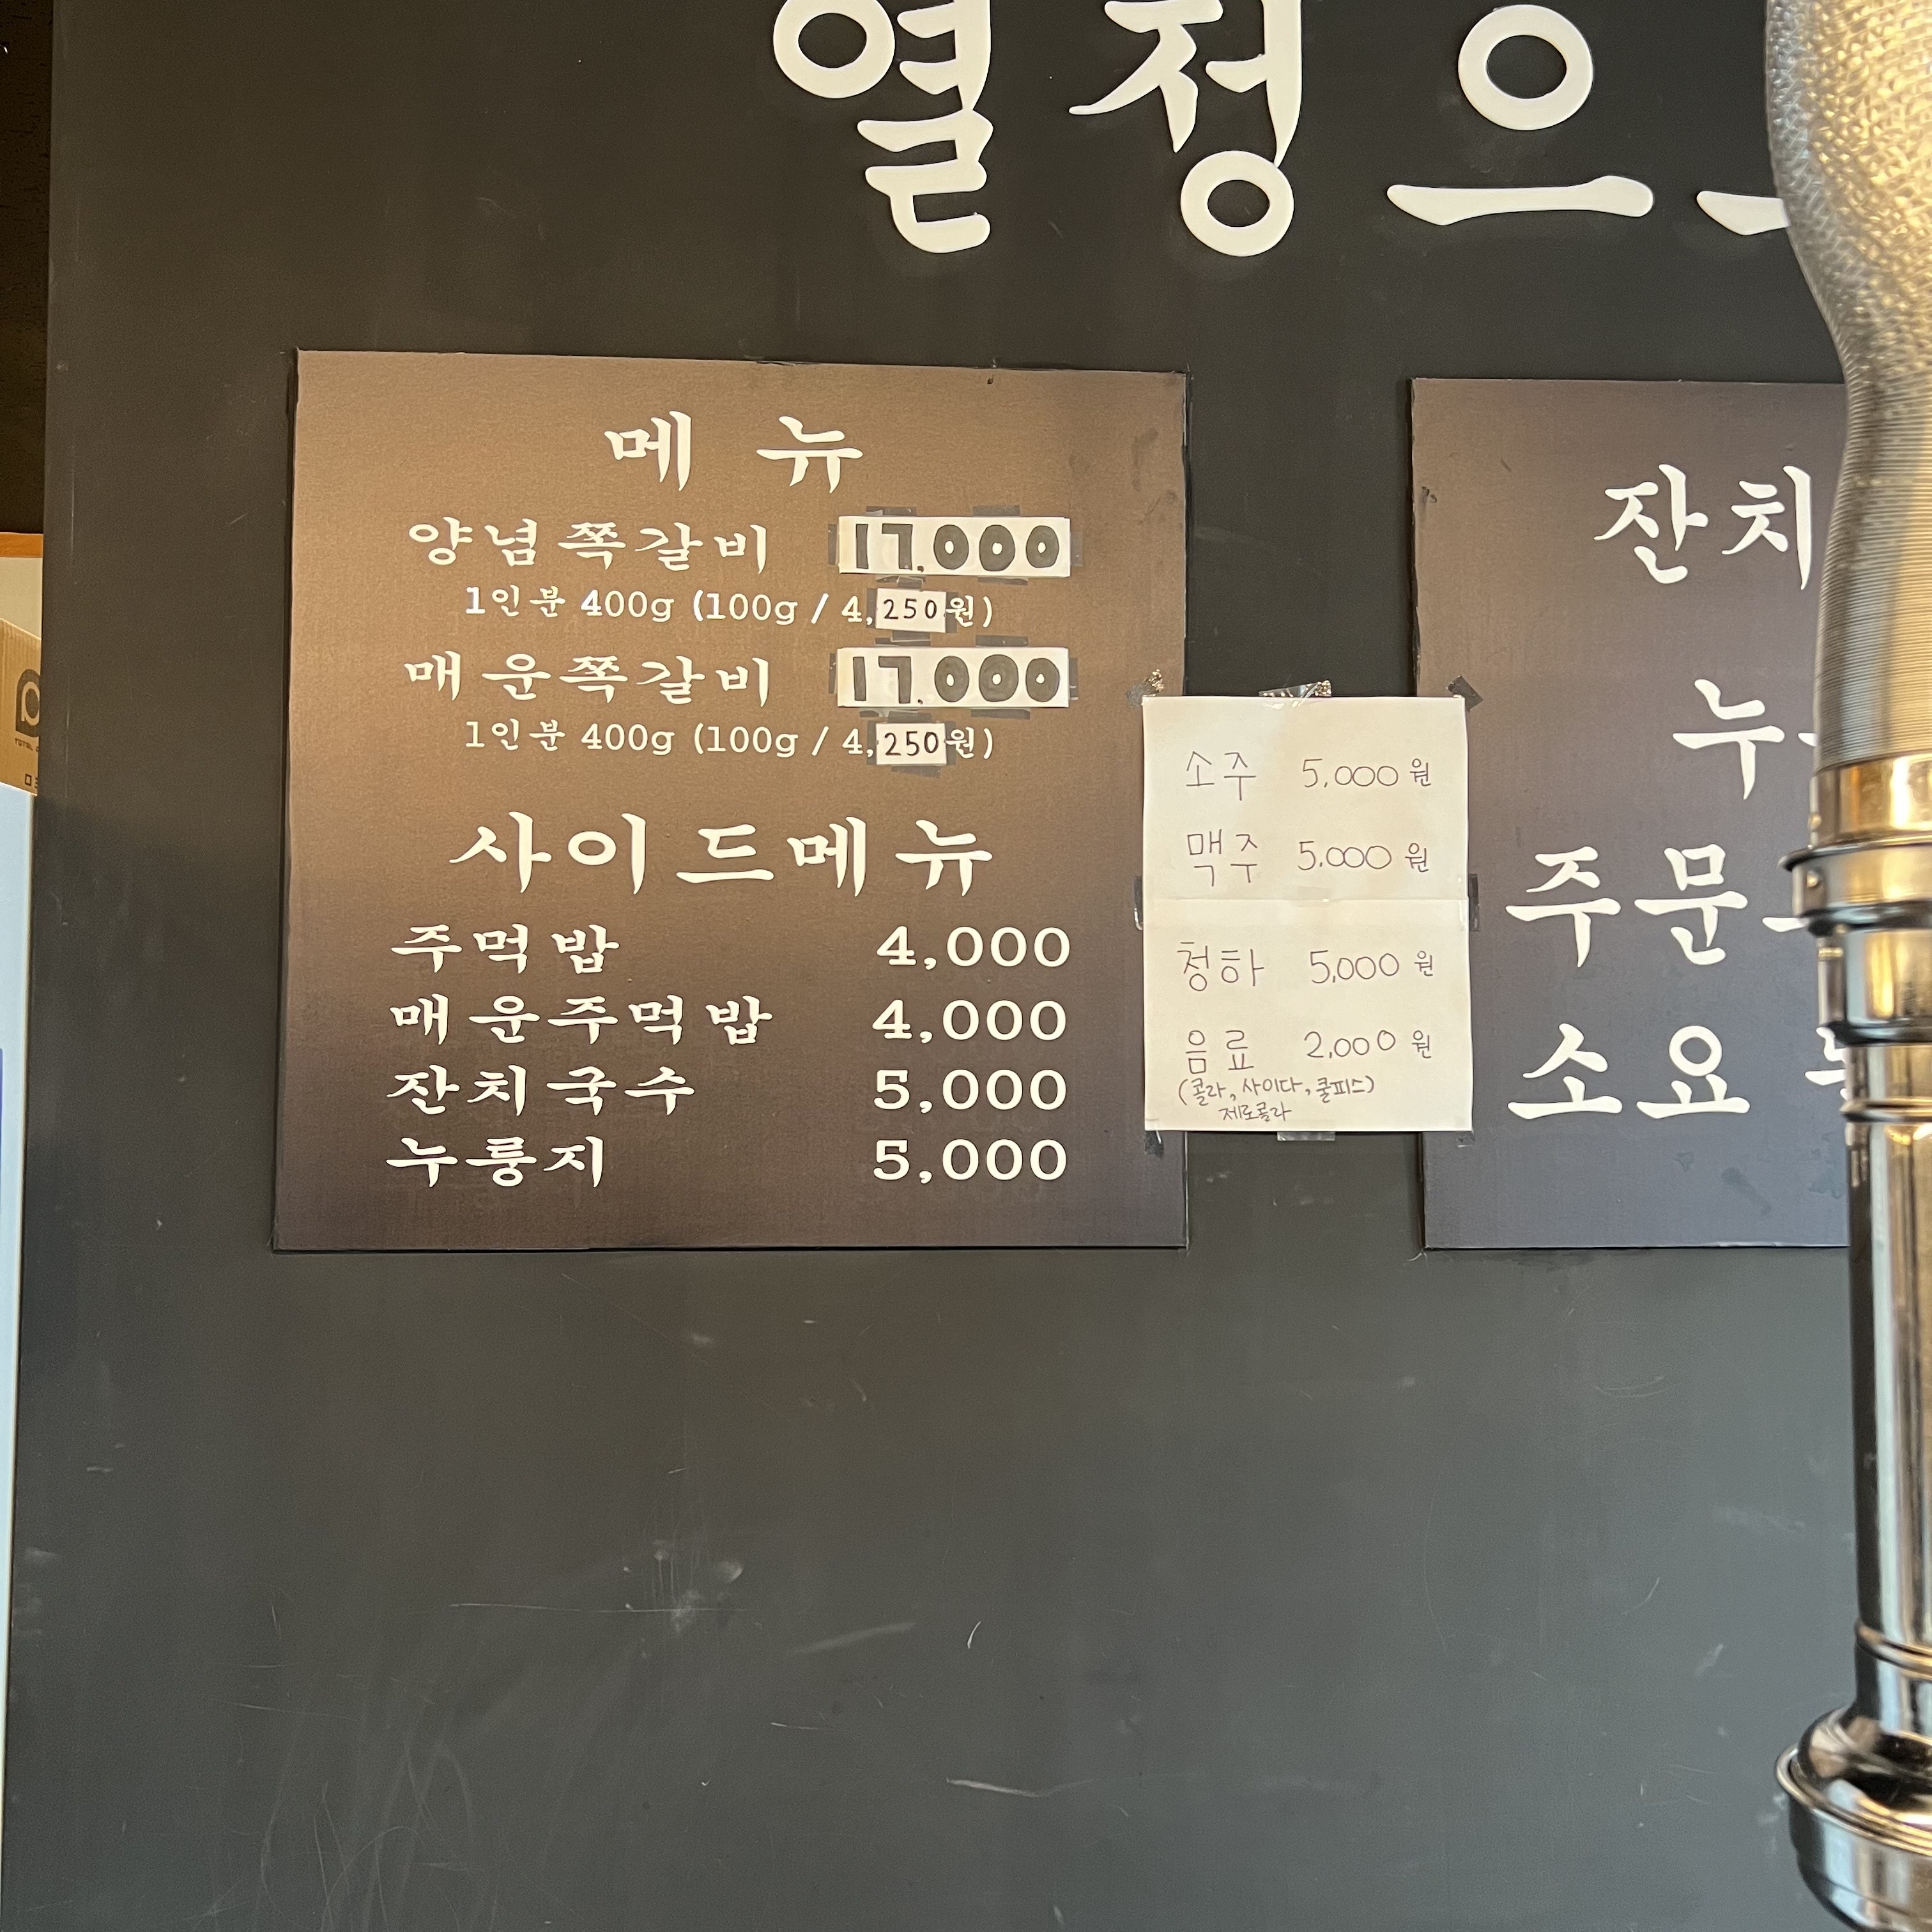 열정으
메뉴
양념쪽갈비 17.000
1인분 400g (100g / 4,250원)
매운쪽갈비 17.000
1인분 400g (100g / 4,250원)
사이드메뉴
주먹밥 4,000
매운주먹밥 4,000
잔치국수 5,000
누룽지 5,000
소주 5,000원
맥주 5.000원
청하 5,000원
음료 2,000원
(콜라, 사이다, 쿨피스)
제로콜라
잔치
누
주문
소요